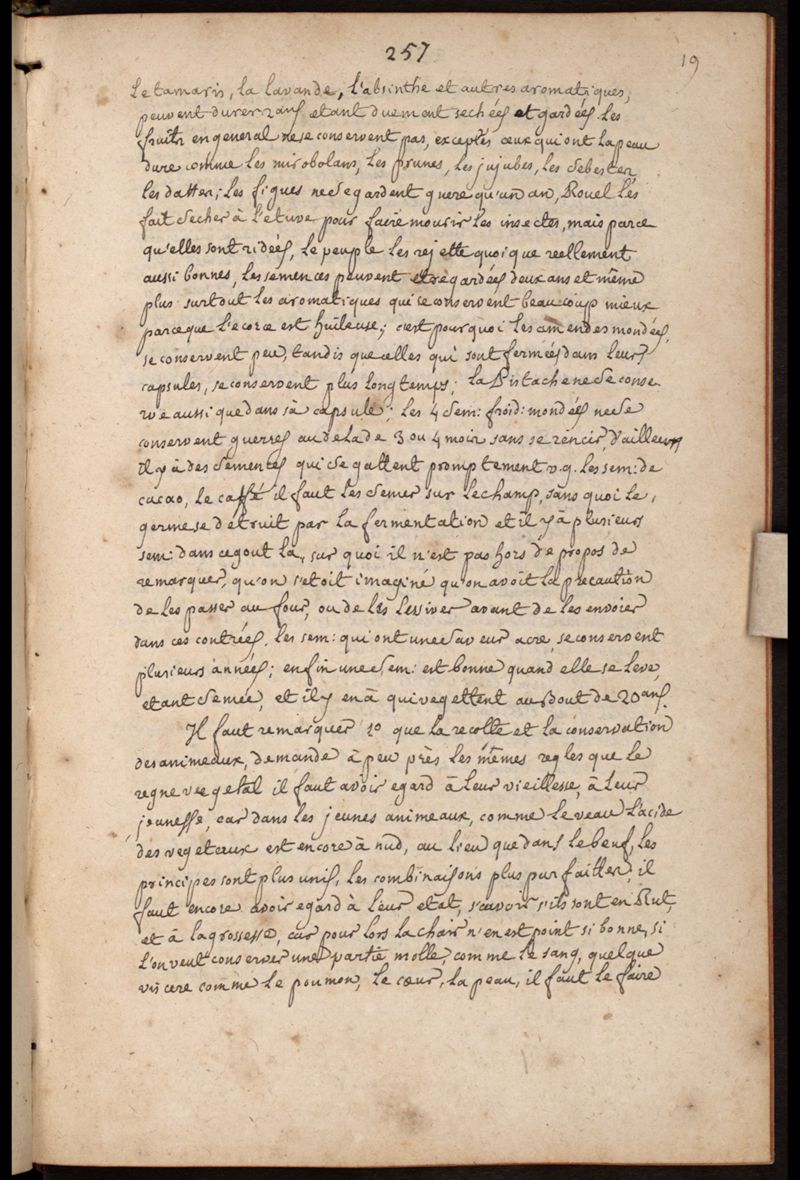 257
19
Le tamaris, la lavande, l'absinthe et autres aromatiques,
peuvent durer 2 ans etant duement sechées et gardées. Les
fruits en general ne se conservent pas, exceptés ceux qui ont la peau
dure comme les mirobolans, les prunes, les jujubes, les sebestes,
les dattes; les figues ne se gardent guere qu'un an, Rouel les
fait secher à l'etuve pour faire mourir les insectes, mais parce
qu'elles sont ridées, le peuple les rejette quoique reellement
aussi bonnes, les semences peuvent etre gardées deux ans et même
plus surtout les aromatiques qui se conservent beaucoup mieux
parceque l'ecorce est huileuse; c'est pourquoi les amendes mondées,
se conservent peu, tandis que celles qui sont fermées dans leurs
capsules, se conservent plus longtemps; la Pistache ne se conse
rve aussi que dans sa capsule; les 4 sem: froid: mondées ne se
conservent guerres au dela de 3 ou 4 mois sans se rencir, d'ailleurs
il y à des semences qui se gattent promptement v.g. les sem: de
cacao, le caffé il faut les semer sur le champ, sans quoi le
germe se detruit par la fermentation et il y à plusieurs
sem: dans ce gout la, sur quoi il n'est pas hors de propos de
remarquer, qu'on s'etoit imaginé qu'on avoit la precaution
de les passer au four, ou de les lessiver avant de les envoier
dans ces contrées. les sem: qui ont une saveur acre, se conservent
plusieurs années; enfin une sem: est bonne quand elle se leve,
etant semée, et il y en à qui vegettent au bout de 20 ans.
Il faut remarquer 1º que la recolte et la conservation
des animeaux, demande à peu près les mêmes regles que le
regne vegetal il faut avoir egard à leur vieillesse, à leur
jeunesse, car dans les jeunes animeaux, comme le veau l'acide
des vegetaux est encore à nud, au lieu que dans le beuf, les
principes sont plus unis, les combinaisons plus parfaittes, il
faut encore avoir egard à leur etat, s'avoir s'ils sont en Rut,
et à la grossesse, car pour lors la chair n'en est point si bonne, si
l'on veut conserver une partie molle, comme le sang, quelque
viscere comme le poumon, le cœur, la peau, il faut le faire